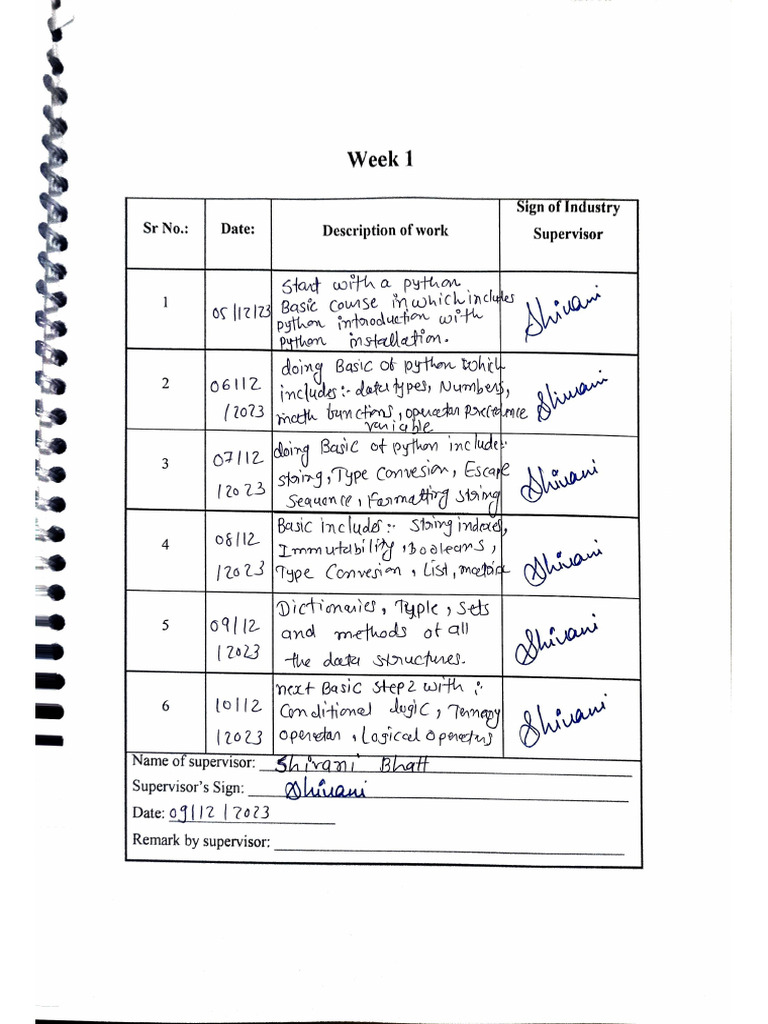 Week 1
Sr No.: Date: Description of work Sign of Industry Supervisor
1 05/12/23 Start with a python
Basic Course in which includes
python introduction with
python installation.
Shivani
2 06/12
/2023
doing Basic of python which
includes:- datatypes, Numbers,
math functions, operator precedence
variable
Shivani
3 07/12
/2023
doing Basic of python include:-
string, Type Convesion, Escape
Sequence, Formatting string
Shivani
4 08/12
/2023
Basic includes:- String indexes,
Immutability, booleans,
Type Convesion, List,
Shivani
5 09/12
/2023
Dictionaries, Typle, Sets
and methods of all
the data structures.
Shivani
6 10/12
/2023
next Basic Step2 with :-
Conditional logic, Ternary
operator, Logical Operators
Shivani
Name of supervisor: Shivani Bhatt
Supervisor's Sign: Shivani
Date: 09/12/2023
Remark by supervisor: